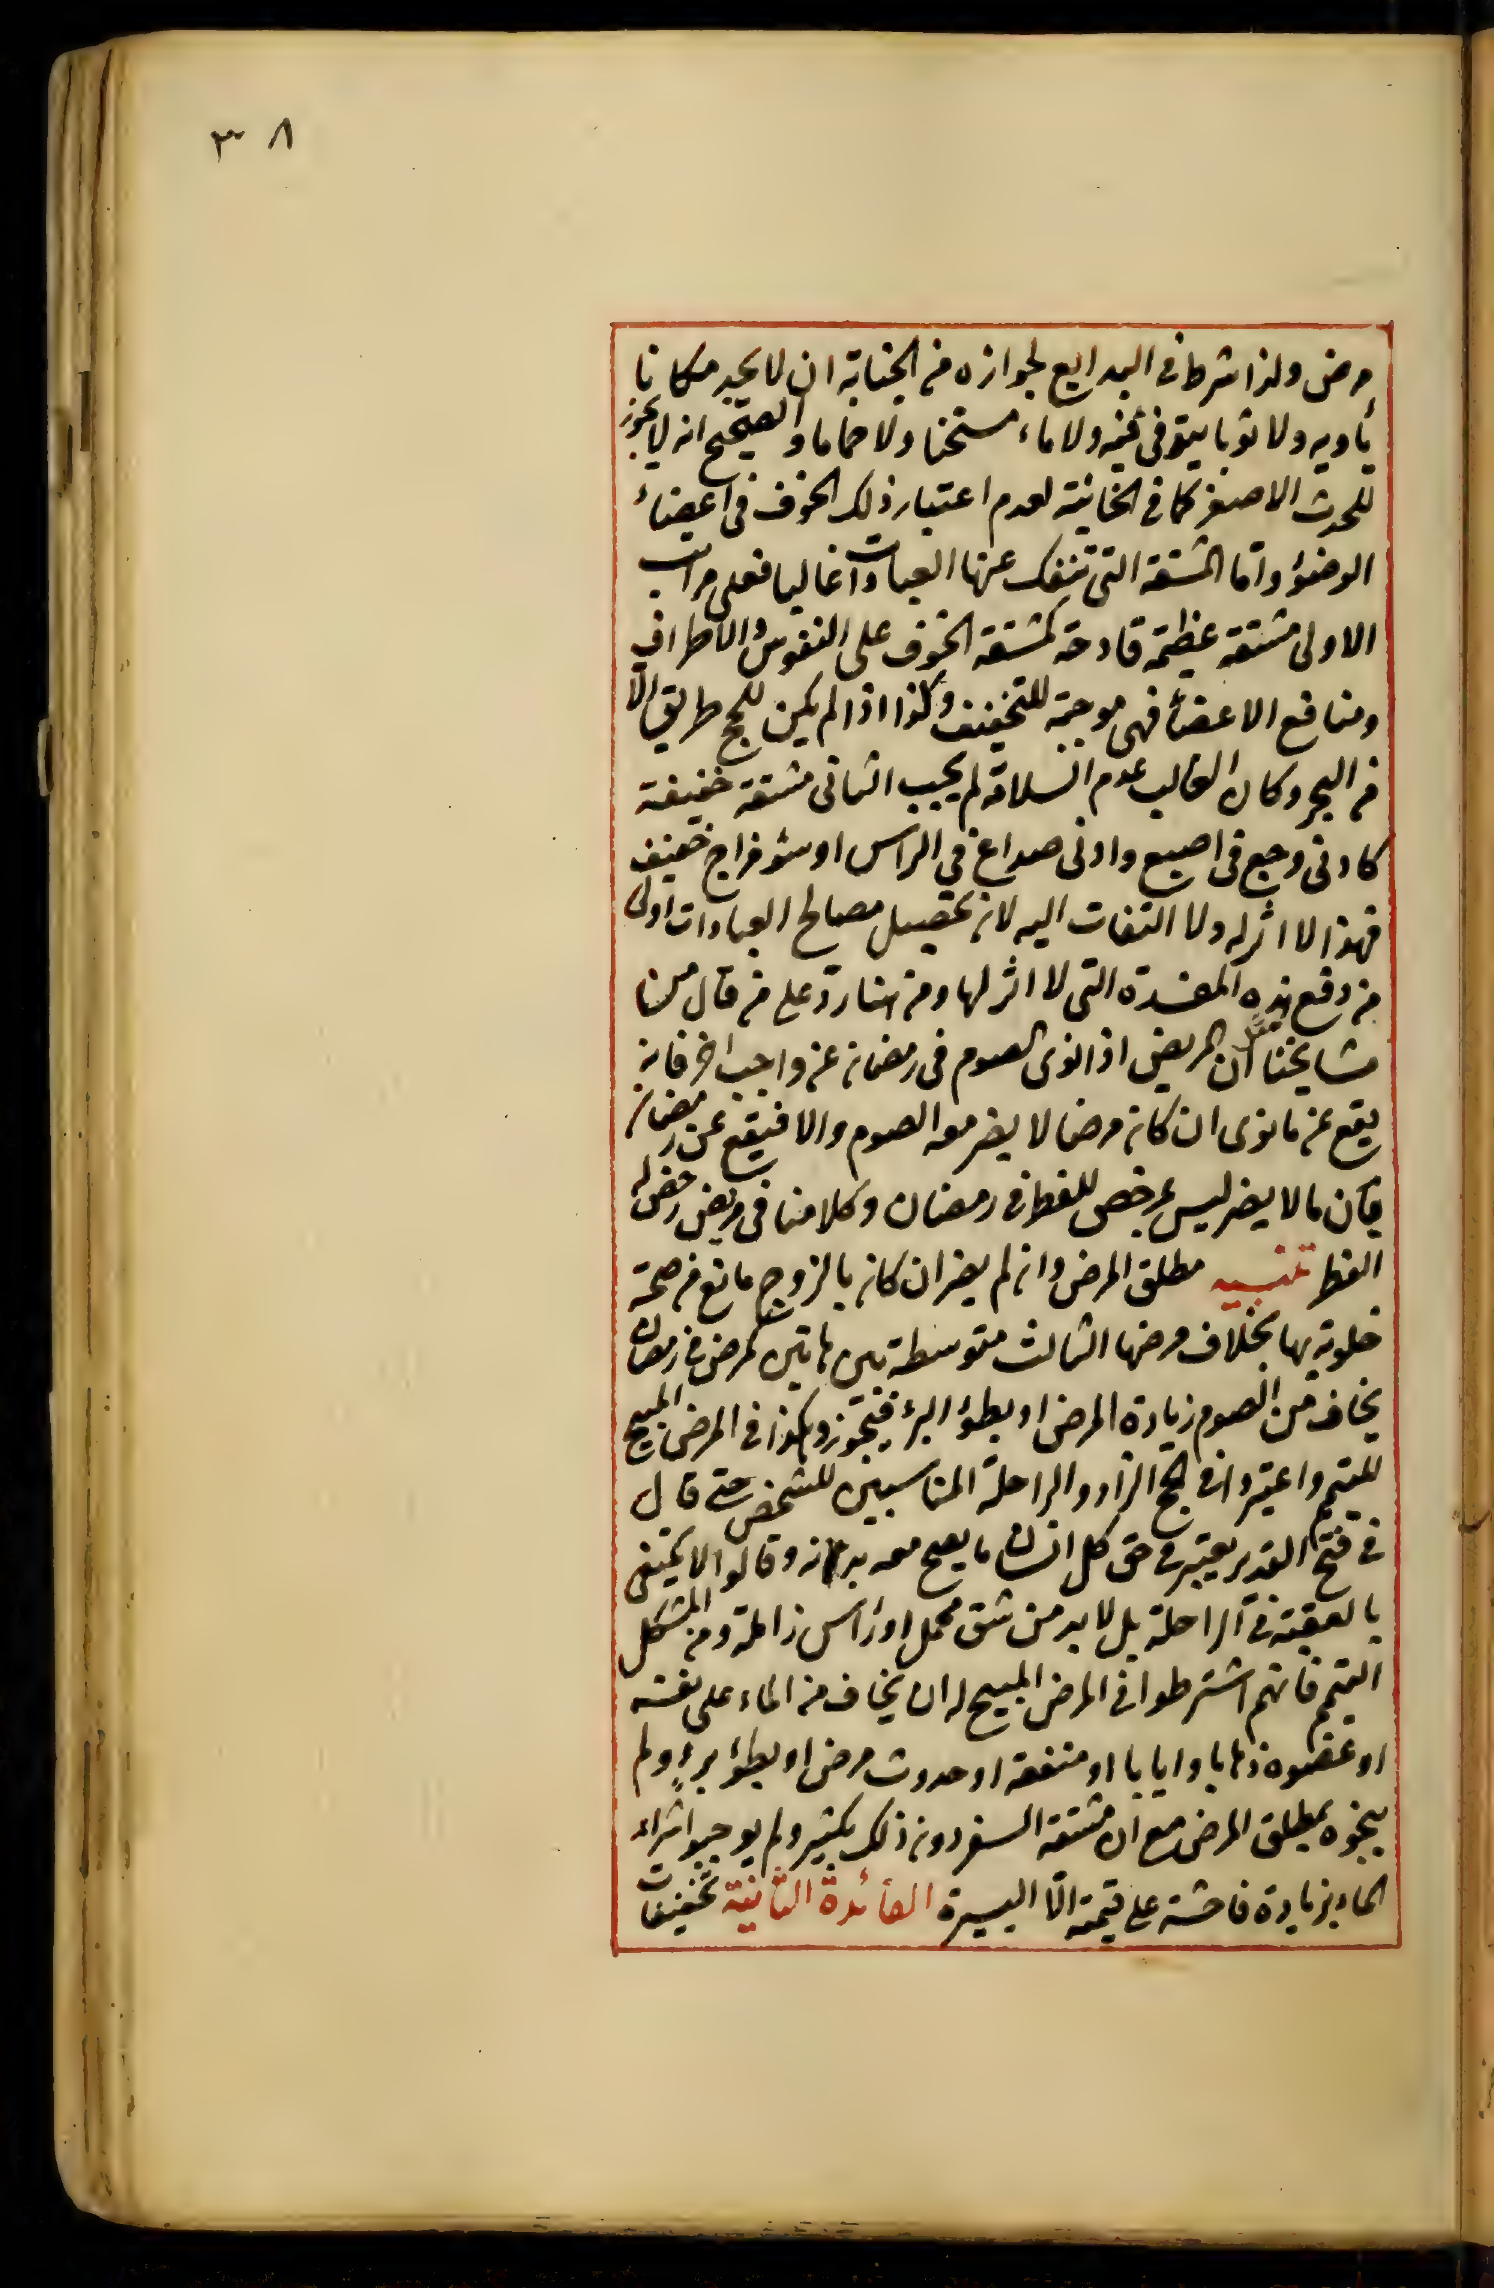 ٣٨
مرض ولذا شرط فى البدايع لجوازه من الجنابة ان لا يجد مكانا
يأويه ولا ثوبا يتوفى فيه ولا ماء مسخنا ولا حماما والصحيح انه لا يجوز
للحدث الاصغر كما فى الخانية لعدم اعتبار ذلك الخوف فى اعضاء
الوضوء واما المشقة التى تنفك عنها العبادات غالبا فعلى مراتب
الاولى مشقة عظيمة فادحة كمشقة الخوف على النفوس والاطراف
ومنافع الاعضاء فهى موجبة للتخفيف وكذا اذا لم يكن للحج طريق الا
من البحر وكان الغالب عدم السلامة لم يجب الثانى مشقة خفيفة
كادنى وجع فى اصبع وادنى صداع فى الراس او سوء مزاج خفيف
فهذا لا اثر له ولا التفات اليه لان تحصيل مصالح العبادات اولى
من دفع هذه المفسدة التى لا اثر لها ومن هنا رد على من قال من
مشايخنا ان المريض اذا نوى الصوم فى رمضان عن واجب اخر فانه
يقع عن ما نوى ان كان مرضا لا يضر معه الصوم والا فيقع عن رمضان
فان ما لا يضر ليس بمرخص للفطر فى رمضان وكلامنا فى مريض رخص له
الفطر تنبيه مطلق المرض وان لم يضر ان كان بالزوج مانع من صحة
خلوته بها بخلاف مرضها الثالث متوسطة بين هاتين كمرض فى رمضان
يخاف من الصوم زيادة المرض او بطؤ البرء فيتجوز وهكذا فى المرض المبيح
للتيمم واعتبروا فى الحج الزاد والراحلة المناسبين للشخص حتى قال
فى فتح القدير يعتبر فى حق كل انسان ما يصح معه بدنه وقالوا لا يكتفى
بالعقبة فى الراحلة بل لا بد من شق محمل او رأس زاملة ومن المشكل
التيمم فانهم اشترطوا فى المرض المبيح له ان يخاف من الماء على نفسه
او عضوه ذهابا وايابا او منفعة او حدوث مرض او بطؤ برء ولم
يبيحوه بمطلق المرض مع ان مشقة السفر دون ذلك بكثير ولم يوجبوا شراء
الماء بزيادة فاحشة على قيمته الا اليسيرة الفائدة الثانية تخفيفات